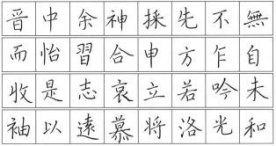 晋中余神採先不無
而怡習合申方乍自
收是志哀立若吟未
袖以遠慕将洛光和